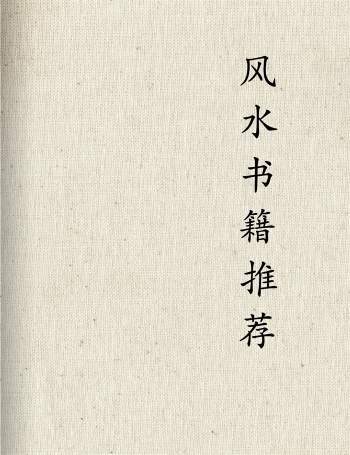 风水书籍推荐